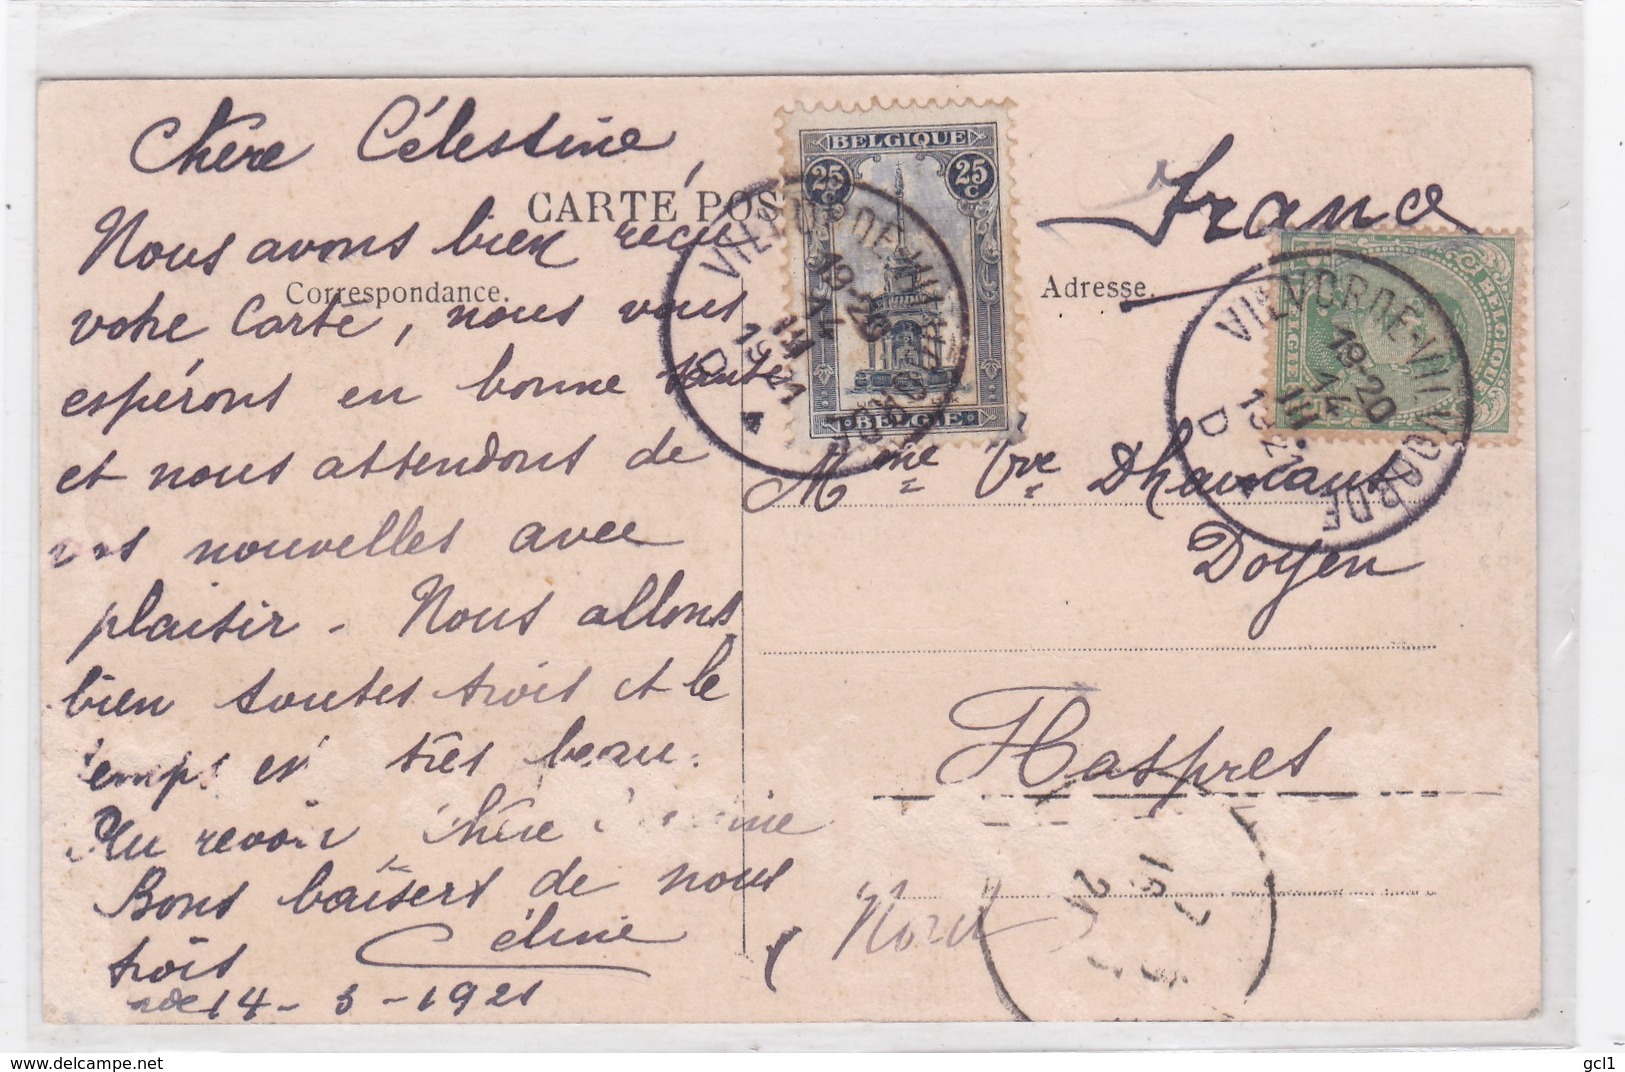 Chère Célestine,
CARTE POS
Nous avons bien reçu
Correspondance.
votre Carte, nous vous
espérons en bonne santé
et nous attendons de
vos nouvelles avec
plaisir - Nous allons
bien toutes trois et le
temps est très beau.
Au revoir chère
Bons baisers de nous
trois Céline
14-3-1921
BELGIQUE
25 C 25 C
BELGIË
VILVORDE-VILVOORDE
19-20
14
III
1921
D
France
Adresse.
BELGIQUE
BELGIË
VILVORDE-VILVOORDE
19-20
14
III
1921
D
Mme Vve
Doyen
Haspres
Nord
delcampe.net
gcl1